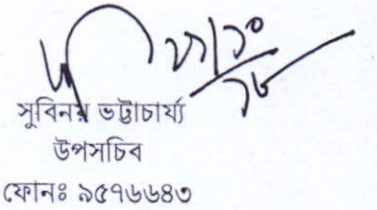 সুবিনয় ভট্টাচার্য্য
উপসচিব
ফোনঃ ৯৫৭৬৬৪৩